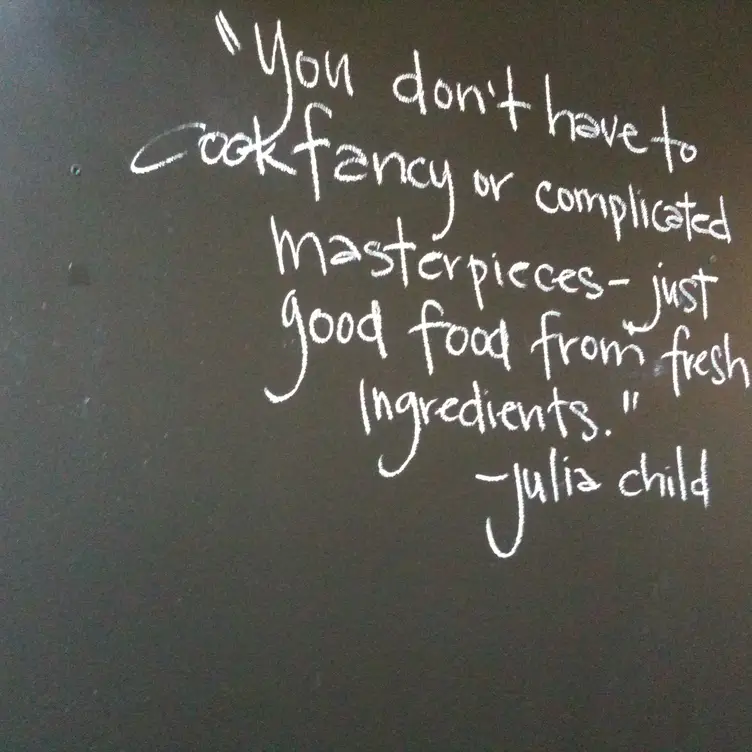 "You don't have to
cook fancy or complicated
masterpieces - just
good food from fresh
Ingredients."
- Julia child